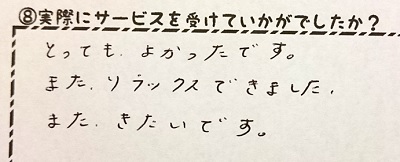 ⑧実際にサービスを受けていかがでしたか？
とっても、よかったです。
また、リラックスできました、
また、きたいです。